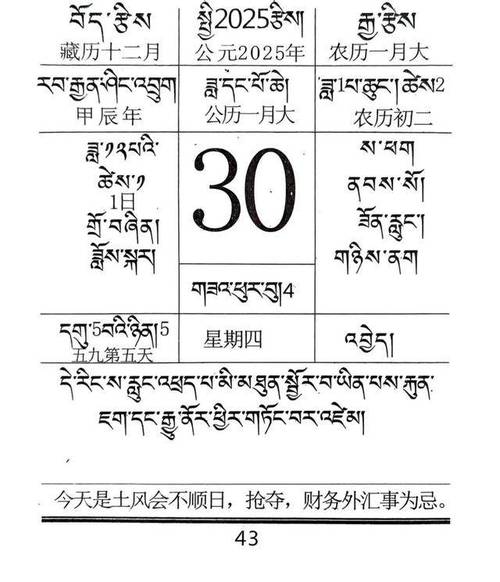 བོད་རྩིས
སྤྱི2025རྩིས།
རྒྱ་རྩིས
藏历十二月
公元2025年
农历一月大
རབ་རྒྱན་ཤིང་འབྲུག
ཟླ་དང་པོ་ཆེ།
ཟླ་1པ་ཆུང་།ཚེས2
甲辰年
公历一月大
农历初二
ཟླ་༡༢པའི་
ཚེས་༡
1日
གྲོ་བཞིན།
ཟློས་སྐར།
30
ས་ཕག
ནབས་སོ།
ཟོན་རླུང་།
གཉིས་ནག
གཟའ་ཕུར་བུ།4
དགུ་5བའི་ཉིན།5
五九第五天
星期四
འབྱེད།
དེ་རིང་ས་རླུང་འཕྲད་པ་མི་མཐུན་སྦྱོར་བ་ཡིན་པས་རྐུན་
ཇག་དང་རྒྱུ་ནོར་ཕྱིར་གཏོང་བར་འཛེམ།
今天是土风会不顺日，抢夺，财务外汇事为忌。
43